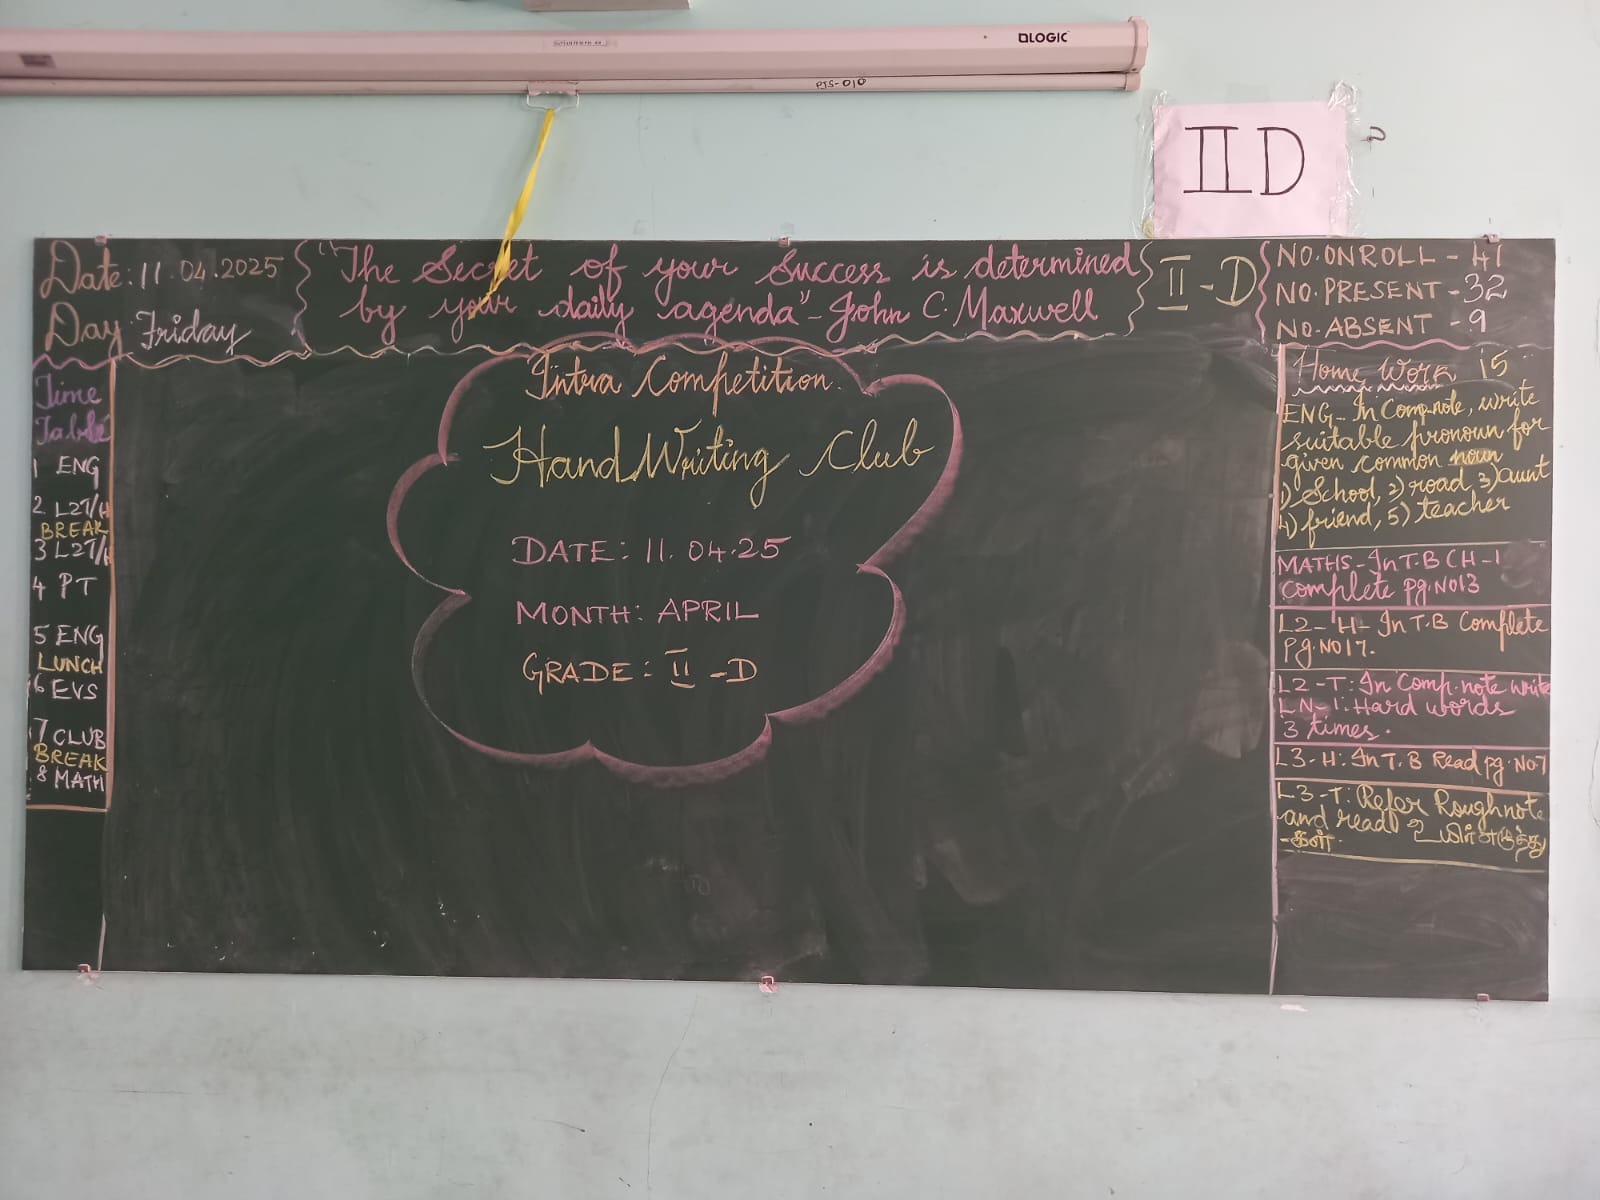 QLOGIC
PJS-010
II D
Date: 11.04.2025
Day: Friday
"The Secret of your Success is determined
by your daily agenda" - John C. Maxwell
II - D
NO. ONROLL - 41
NO. PRESENT - 32
NO. ABSENT - 9
Time
Table
1 ENG
2 L2T/H
BREAK
3 L2T/H
4 PT
5 ENG
LUNCH
6 EVS
7 CLUB
BREAK
8 MATH
Intra Competition
HandWriting Club
DATE: 11.04.25
MONTH: APRIL
GRADE: II - D
Home Work 15
ENG - In Comp.note, write
suitable pronoun for
given common noun
1) School, 2) road, 3) aunt
4) friend, 5) teacher
MATHS - In T.B CH-1
complete pg.NO13
L2 - H - In T.B Complete
Pg.NO17.
L2 - T: In Comp.note write
LN-1: Hard words
3 times.
L3-H: In T.B Read pg.No7
L3-T: Refer Roughnote
and read உயிர்எழுத்து
-கள்.